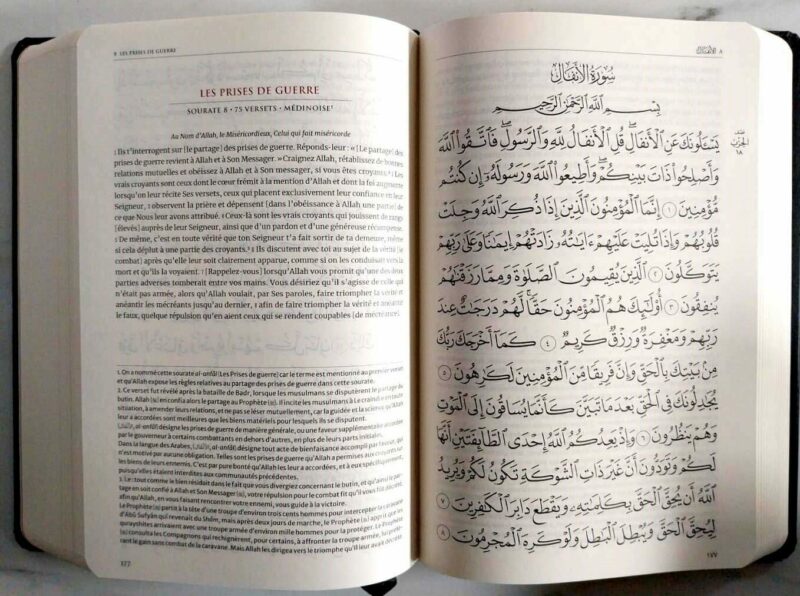 8 LES PRISES DE GUERRE
LES PRISES DE GUERRE
SOURATE 8 • 75 VERSETS • MÉDINOISE¹
Au Nom d'Allah, le Miséricordieux, Celui qui fait miséricorde
1 Ils t'interrogent sur [le partage] des prises de guerre. Réponds-leur : « [Le partage] des
prises de guerre revient à Allah et à Son Messager. » Craignez Allah, rétablissez de bonnes
relations mutuelles et obéissez à Allah et à Son Messager, si vous êtes croyants.² 2 Les
vrais croyants sont ceux dont le cœur frémit à la mention d'Allah et dont la foi augmente
lorsqu'on leur récite Ses versets, ceux qui placent exclusivement leur confiance en leur
Seigneur, 3 observent la prière et dépensent [dans l'obéissance à Allah une partie] de
ce que Nous leur avons attribué. 4 Ceux-là sont les vrais croyants qui jouissent de rangs
[élevés] auprès de leur Seigneur, ainsi que d'un pardon et d'une généreuse récompense.
5 De même, c'est en toute vérité que ton Seigneur t'a fait sortir de ta demeure, même
si cela déplut à une partie des croyants.³ 6 Ils discutent avec toi au sujet de la vérité [le
combat] après qu'elle leur soit clairement apparue, comme si on les conduisait vers la
mort et qu'ils la voyaient. 7 [Rappelez-vous] lorsqu'Allah vous promit qu'une des deux
parties adverses tomberait entre vos mains. Vous désiriez qu'il s'agisse de celle qui
n'était pas armée, alors qu'Allah voulait, par Ses paroles, faire triompher la vérité et
anéantir les mécréants jusqu'au dernier, 8 afin de faire triompher la vérité et anéantir
le faux, quelque répulsion qu'en aient ceux qui se rendent coupables [de mécréance].
1. On a nommé cette sourate al-anfâl (Les Prises de guerre) car le terme est mentionné au premier verset
et qu'Allah expose les règles relatives au partage des prises de guerre dans cette sourate.
2. Ce verset fut révélé après la bataille de Badr, lorsque les musulmans se disputèrent le partage du
butin. Allah confia alors le partage au Prophète. Il incite les musulmans à Le craindre en toute
situation, à amender leurs relations, et ne pas se léser mutuellement, car la guidée et la science qu'Allah
leur a accordées sont meilleures que les biens matériels pour lesquels ils se disputent.
al-anfâl) désigne les prises de guerre de manière générale, ou une faveur supplémentaire accordée
par le gouverneur à certains combattants en dehors d'autres, en plus de leurs parts initiales.
Dans la langue des Arabes, al-anfâl) désigne tout acte de bienfaisance accompli par faveur, qui
n'est motivé par aucune obligation. Telles sont les prises de guerre qu'Allah a permises aux croyants
les biens de leurs ennemis. C'est par pure bonté qu'Allah les leur a accordées, et à eux spécifiquement,
puisqu'elles étaient interdites aux communautés précédentes.
3. I.e : tout comme le bien résidait dans le fait que vous divergiez concernant le butin, et qu'ainsi le partage
en soit confié à Allah et Son Messager, votre répulsion pour le combat fit qu'il vous l'ait décrété,
afin qu'Allah, en vous faisant rencontrer votre ennemi, vous guide à la victoire.
Le Prophète partit à la tête d'une troupe d'environ trois cents hommes pour intercepter la caravane
d'Abû Sufyân qui revenait du Shâm, mais après deux jours de marche, le Prophète apprit que les
qurayshites arrivaient avec une troupe armée d'environ mille hommes pour le protéger. Le Prophète
consulta les Compagnons qui rechignèrent, pour certains, à affronter la troupe armée,
rant le gain sans combat de la caravane. Mais Allah les dirigea vers le triomphe qu'Il leur avait décrété
177
٨ الأنفال
سُورَةُ الأَنفَالِ
بِسْمِ اللَّهِ الرَّحْمَٰنِ الرَّحِيمِ
يَسْـَٔلُونَكَ عَنِ ٱلْأَنفَالِۖ قُلِ ٱلْأَنفَالُ لِلَّهِ وَٱلرَّسُولِۖ فَٱتَّقُواْ ٱللَّهَ
وَأَصْلِحُواْ ذَاتَ بَيْنِكُمْۖ وَأَطِيعُواْ ٱللَّهَ وَرَسُولَهُۥٓ إِن كُنتُم
مُّؤْمِنِينَ ١ إِنَّمَا ٱلْمُؤْمِنُونَ ٱلَّذِينَ إِذَا ذُكِرَ ٱللَّهُ وَجِلَتْ
قُلُوبُهُمْ وَإِذَا تُلِيَتْ عَلَيْهِمْ ءَايَٰتُهُۥ زَادَتْهُمْ إِيمَٰنًا وَعَلَىٰ رَبِّهِمْ
يَتَوَكَّلُونَ ٢ ٱلَّذِينَ يُقِيمُونَ ٱلصَّلَوٰةَ وَمِمَّا رَزَقْنَٰهُمْ
يُنفِقُونَ ٣ أُوْلَٰٓئِكَ هُمُ ٱلْمُؤْمِنُونَ حَقًّاۚ لَّهُمْ دَرَجَٰتٌ عِندَ
رَبِّهِمْ وَمَغْفِرَةٌ وَرِزْقٌ كَرِيمٌ ٤ كَمَآ أَخْرَجَكَ رَبُّكَ
مِنۢ بَيْتِكَ بِٱلْحَقِّ وَإِنَّ فَرِيقًا مِّنَ ٱلْمُؤْمِنِينَ لَكَٰرِهُونَ ٥
يُجَٰدِلُونَكَ فِي ٱلْحَقِّ بَعْدَ مَا تَبَيَّنَ كَأَنَّمَا يُسَاقُونَ إِلَى ٱلْمَوْتِ
وَهُمْ يَنظُرُونَ ٦ وَإِذْ يَعِدُكُمُ ٱللَّهُ إِحْدَى ٱلطَّآئِفَتَيْنِ أَنَّهَا
لَكُمْ وَتَوَدُّونَ أَنَّ غَيْرَ ذَاتِ ٱلشَّوْكَةِ تَكُونُ لَكُمْ وَيُرِيدُ
ٱللَّهُ أَن يُحِقَّ ٱلْحَقَّ بِكَلِمَٰتِهِۦ وَيَقْطَعَ دَابِرَ ٱلْكَٰفِرِينَ ٧
لِيُحِقَّ ٱلْحَقَّ وَيُبْطِلَ ٱلْبَٰطِلَ وَلَوْ كَرِهَ ٱلْمُجْرِمُونَ ٨
نصف
الحزب
١٨
١٧٧